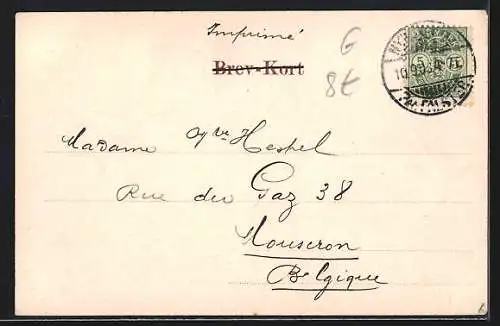 Imprimé
Brev-Kort
G
8€
5
Madame Vve Hespel
Rue du Gaz 38
Mouscron
Belgique